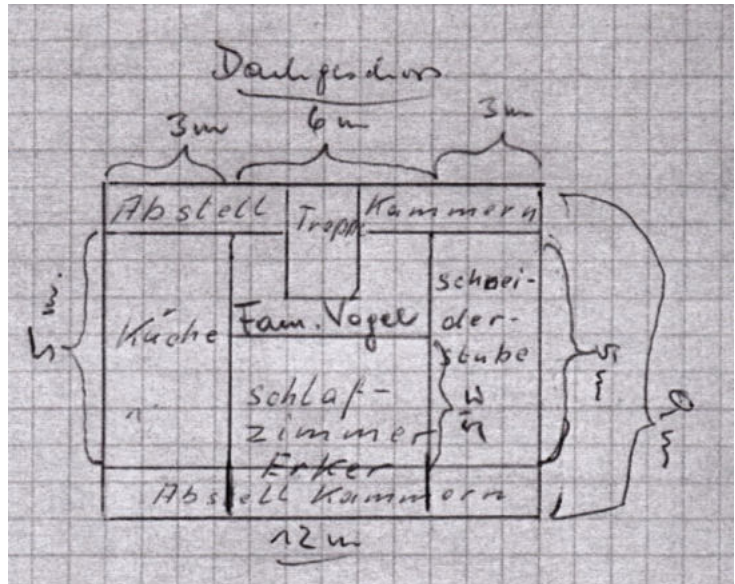 Dachgeschoss
3m 6m 3m
Abstell Treppe Kammern
5m.
Küche
Fam. Vogel
schnei-
der-
stube
5m
schlaf-
zimmer
3m
Erker
Abstell Kammern
12m